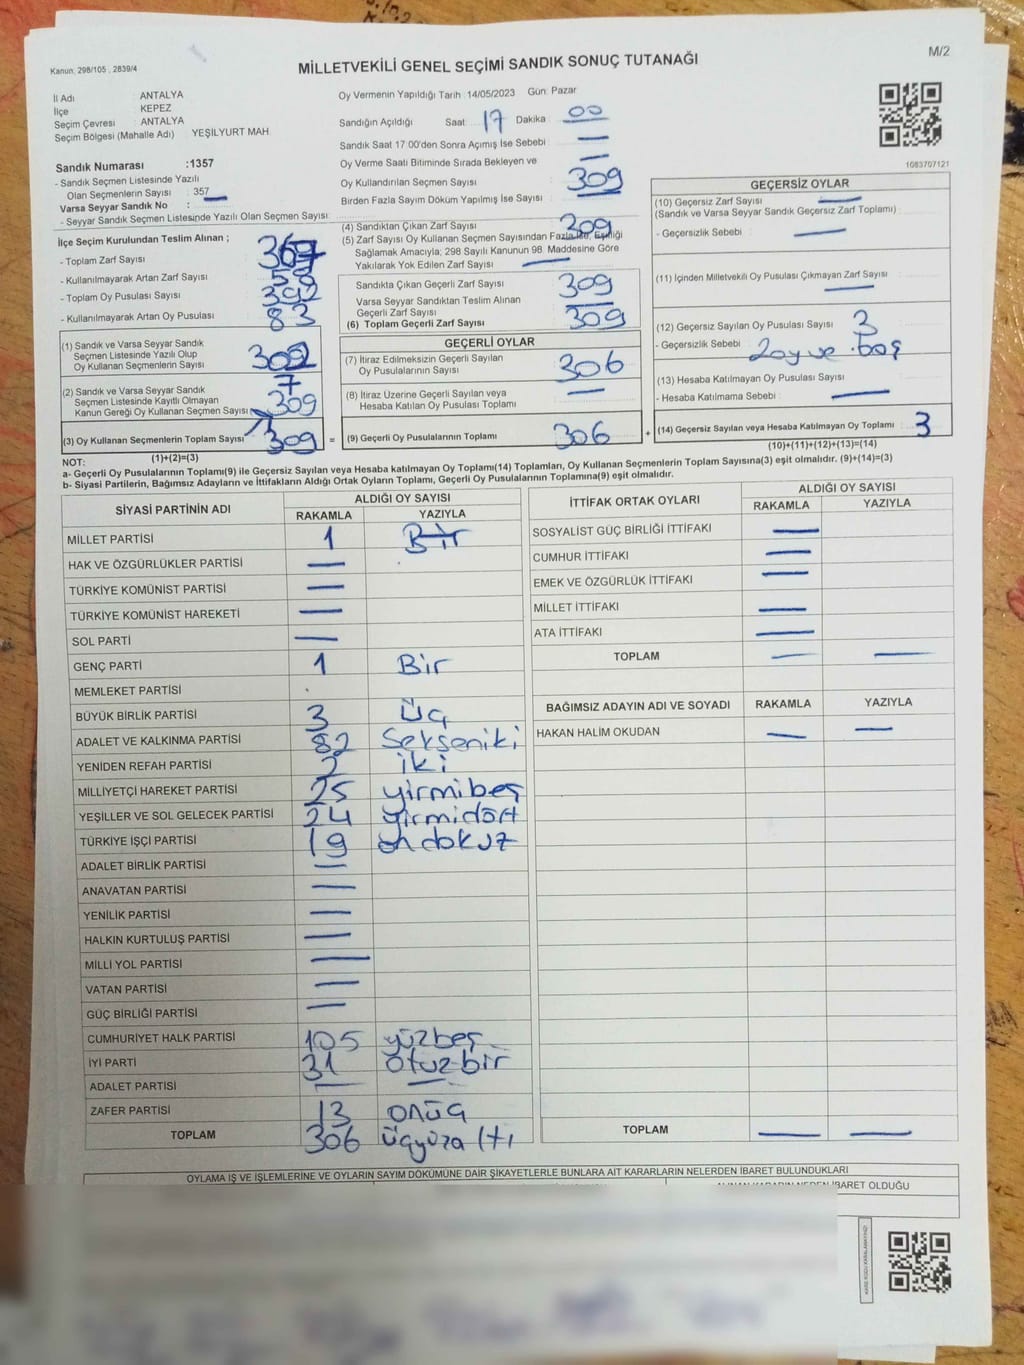 M/2
Kanun: 298/105 , 2839/4
MİLLETVEKİLİ GENEL SEÇİMİ SANDIK SONUÇ TUTANAĞI
İl Adı : ANTALYA
İlçe : KEPEZ
Seçim Çevresi : ANTALYA
Seçim Bölgesi (Mahalle Adı) YEŞİLYURT MAH
Sandık Numarası :1357
- Sandık Seçmen Listesinde Yazılı
Olan Seçmenlerin Sayısı : 357
Varsa Seyyar Sandık No :
- Seyyar Sandık Seçmen Listesinde Yazılı Olan Seçmen Sayısı :
Oy Vermenin Yapıldığı Tarih :14/05/2023 Gün: Pazar
Sandığın Açıldığı Saat : 17 Dakika : 00
Sandık Saat 17 00'den Sonra Açımış İse Sebebi : —
Oy Verme Saati Bitiminde Sırada Bekleyen ve : —
Oy Kullandırılan Seçmen Sayısı 309
Birden Fazla Sayım Döküm Yapılmış İse Sayısı : —
1083707121
İlçe Seçim Kurulundan Teslim Alınan ;
- Toplam Zarf Sayısı : 367
- Kullanılmayarak Artan Zarf Sayısı : 58
- Toplam Oy Pusulası Sayısı : 392
- Kullanılmayarak Artan Oy Pusulası : 83
(1) Sandık ve Varsa Seyyar Sandık
Seçmen Listesinde Yazılı Olup
Oy Kullanan Seçmenlerin Sayısı : 302
(2) Sandık ve Varsa Seyyar Sandık 7
Seçmen Listesinde Kayıtlı Olmayan
Kanun Gereği Oy Kullanan Seçmen Sayısı : 309
(3) Oy Kullanan Seçmenlerin Toplam Sayısı : 309
(1)+(2)=(3)
(4) Sandıktan Çıkan Zarf Sayısı : 309
(5) Zarf Sayısı Oy Kullanan Seçmen Sayısından Fazla İse, Eşitliği
Sağlamak Amacıyla; 298 Sayılı Kanunun 98. Maddesine Göre
Yakılarak Yok Edilen Zarf Sayısı : —
Sandıkta Çıkan Geçerli Zarf Sayısı : 309
Varsa Seyyar Sandıktan Teslim Alınan
Geçerli Zarf Sayısı : —
(6) Toplam Geçerli Zarf Sayısı : 309
GEÇERLİ OYLAR
(7) İtiraz Edilmeksizin Geçerli Sayılan
Oy Pusulalarının Sayısı : 306
(8) İtiraz Üzerine Geçerli Sayılan veya
Hesaba Katılan Oy Pusulası Toplamı : —
= (9) Geçerli Oy Pusulalarının Toplamı : 306 +
GEÇERSİZ OYLAR
(10) Geçersiz Zarf Sayısı : —
(Sandık ve Varsa Seyyar Sandık Geçersiz Zarf Toplamı)
- Geçersizlik Sebebi : —
(11) İçinden Milletvekili Oy Pusulası Çıkmayan Zarf Sayısı : —
(12) Geçersiz Sayılan Oy Pusulası Sayısı : 3
- Geçersizlik Sebebi : 2oy ve boş
(13) Hesaba Katılmayan Oy Pusulası Sayısı :
- Hesaba Katılmama Sebebi : —
(14) Geçersiz Sayılan veya Hesaba Katılmayan Oy Toplamı : 3
(10)+(11)+(12)+(13)=(14)
NOT:
a- Geçerli Oy Pusulalarının Toplamı(9) ile Geçersiz Sayılan veya Hesaba katılmayan Oy Toplamı(14) Toplamları, Oy Kullanan Seçmenlerin Toplam Sayısına(3) eşit olmalıdır. (9)+(14)=(3)
b- Siyasi Partilerin, Bağımsız Adayların ve İttifakların Aldığı Ortak Oyların Toplamı, Geçerli Oy Pusulalarının Toplamına(9) eşit olmalıdır.
SİYASİ PARTİNİN ADI ALDIĞI OY SAYISI
RAKAMLA YAZIYLA
MİLLET PARTİSİ 1 Bir
HAK VE ÖZGÜRLÜKLER PARTİSİ —
TÜRKİYE KOMÜNİST PARTİSİ —
TÜRKİYE KOMÜNİST HAREKETİ —
SOL PARTİ —
GENÇ PARTİ 1 Bir
MEMLEKET PARTİSİ
BÜYÜK BİRLİK PARTİSİ 3 üç
ADALET VE KALKINMA PARTİSİ 82 Sekseniki
YENİDEN REFAH PARTİSİ 2 iki
MİLLİYETÇİ HAREKET PARTİSİ 25 yirmibeş
YEŞİLLER VE SOL GELECEK PARTİSİ 24 yirmidört
TÜRKİYE İŞÇİ PARTİSİ 19 ondokuz
ADALET BİRLİK PARTİSİ —
ANAVATAN PARTİSİ —
YENİLİK PARTİSİ —
HALKIN KURTULUŞ PARTİSİ —
MİLLİ YOL PARTİSİ —
VATAN PARTİSİ —
GÜÇ BİRLİĞİ PARTİSİ —
CUMHURİYET HALK PARTİSİ 105 yüzbeş
İYİ PARTİ 31 otuzbir
ADALET PARTİSİ — —
ZAFER PARTİSİ 13 onüç
TOPLAM 306 üçyüzaltı
İTTİFAK ORTAK OYLARI ALDIĞI OY SAYISI
RAKAMLA YAZIYLA
SOSYALİST GÜÇ BİRLİĞİ İTTİFAKI —
CUMHUR İTTİFAKI —
EMEK VE ÖZGÜRLÜK İTTİFAKI —
MİLLET İTTİFAKI —
ATA İTTİFAKI —
TOPLAM — —
BAĞIMSIZ ADAYIN ADI VE SOYADI RAKAMLA YAZIYLA
HAKAN HALİM OKUDAN — —
TOPLAM — —
OYLAMA İŞ VE İŞLEMLERİNE VE OYLARIN SAYIM DÖKÜMÜNE DAİR ŞİKAYETLERLE BUNLARA AİT KARARLARIN NELERDEN İBARET BULUNDUKLARI
ALINAN KARARIN NEDEN İBARET OLDUĞU
KARE KODU KARALAMAYINIZ!